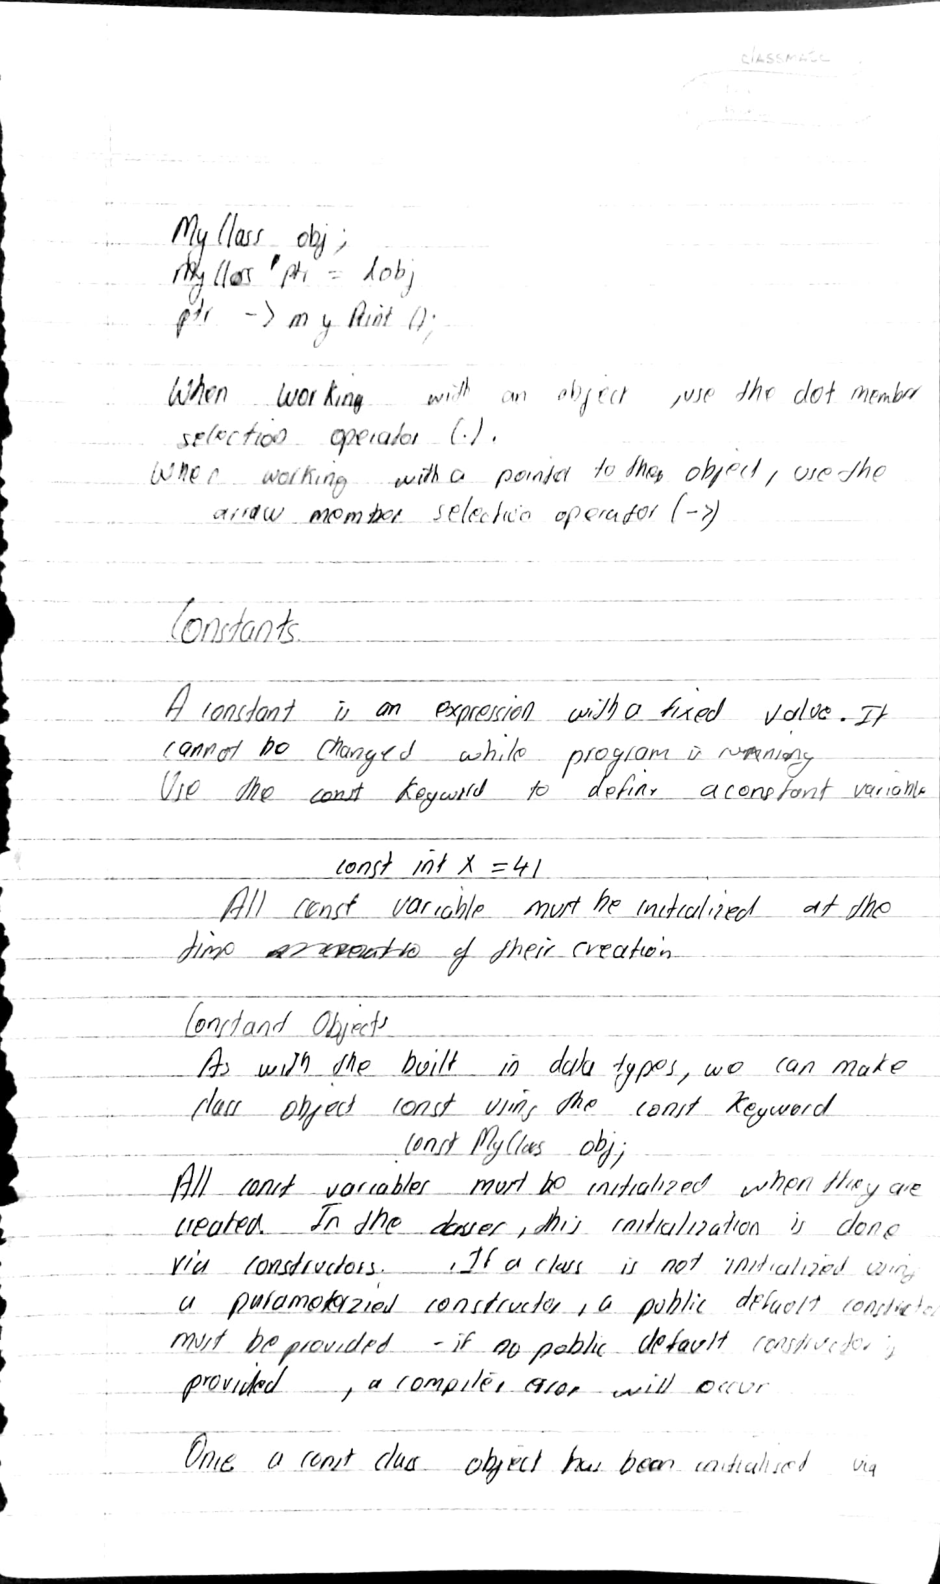 classmate
MyClass obj;
MyClass *ptr = &obj
ptr -> myPrint ();
When working with an object, use the dot member
selection operator (.).
When working with a pointer to the object, use the
arrow member selection operator (->)
Constants
A constant is an expression with a fixed value. It
cannot be changed while program is running
Use the const keyword to define a constant variable
const int x = 41
All const variable must be initialized at the
time of their creation
Constand Objects
As with the built in data types, we can make
class object const using the const keyword
const MyClass obj;
All const variables must be initialized when they are
created. In the classes, this initialization is done
via constructors. If a class is not initialized using
a paramotazied constructor, a public default constructor
must be provided - if no public default constructor is
provided , a compiler error will occur
Once a const class object has been initialised via